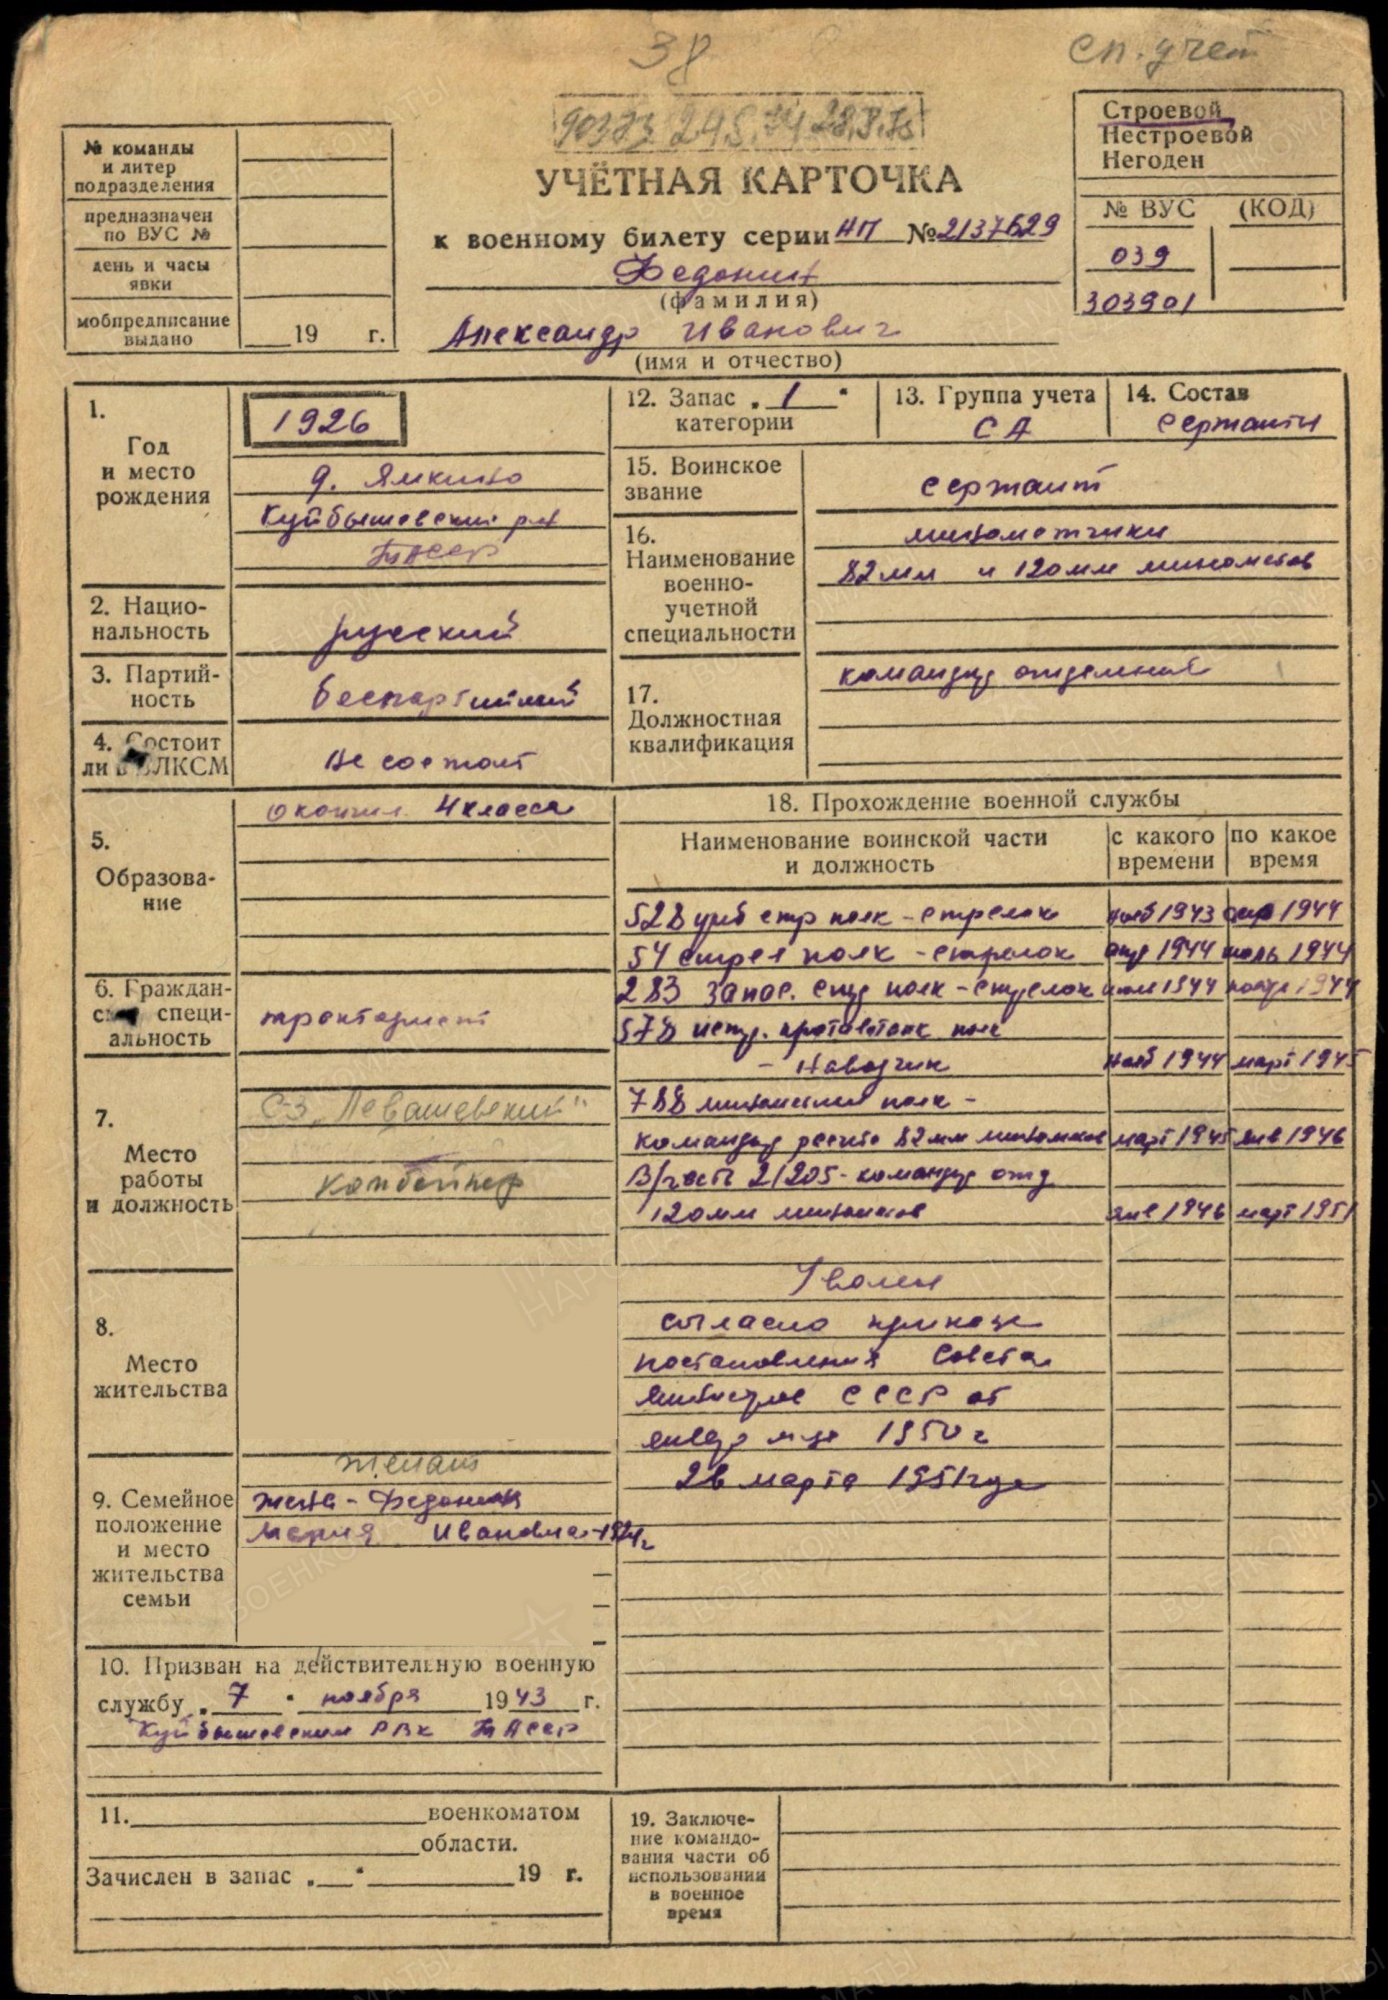 38
сп. учет
90383 24.5.74 28.3.75
№ команды
и литер
подразделения
предназначен
по ВУС №
день и часы
явки
мобпредписание
выдано
19 г.
УЧЁТНАЯ КАРТОЧКА
к военному билету серии НП № 2137629
Федонин
(фамилия)
Александр Иванович
(имя и отчество)
Строевой
Нестроевой
Негоден
№ ВУС (КОД)
039
303901
1.
Год
и место
рождения
1926
д. Ямкино
Куйбышевский р-н
ТАССР
2. Нацио-
нальность
русский
3. Партий-
ность
беспартийный
4. Состоит
ли в ВЛКСМ
Не состоит
12. Запас „ 1 “
категории
13. Группа учета
СА
14. Состав
сержанты
15. Воинское
звание
сержант
16.
Наименование
военно-
учетной
специальности
минометчики
82 мм и 120 мм минометов
17.
Должностная
квалификация
командир отделения
5.
Образова-
ние
окончил 4 класса
6. Граждан-
ская специ-
альность
тракторист
7.
Место
работы
и должность
С-З „Левашевский“
комбайнер
8.
Место
жительства
9. Семейное
положение
и место
жительства
семьи
Женат
жена - Федонина
Мария Ивановна - 1924 г.
10. Призван на действительную военную
службу „ 7 “ ноября 1943 г.
Куйбышевским РВК ТАССР
11. военкоматом
области.
Зачислен в запас „ “ 19 г.
18. Прохождение военной службы
Наименование воинской части
и должность
с какого
времени
по какое
время
528 учеб стр полк - стрелок нояб 1943 апр 1944
54 стрел полк - стрелок апр 1944 июль 1944
283 запас. стр полк - стрелок июль 1944 ноябр 1944
578 истр. противотанк полк
- Наводчик нояб 1944 март 1945
788 минометный полк -
командир расчета 82 мм минометов март 1945 янв 1946
В/часть 21205 - командир отд
120 мм минометов янв 1946 март 1951
Уволен
согласно приказа
постановления Совета
Министров СССР от
января м-ца 1950 г
26 марта 1951 года
19. Заключе-
ние командо-
вания части об
использовании
в военное
время